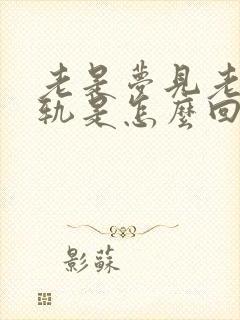 老是夢見老
軌是怎麼回
影蘇